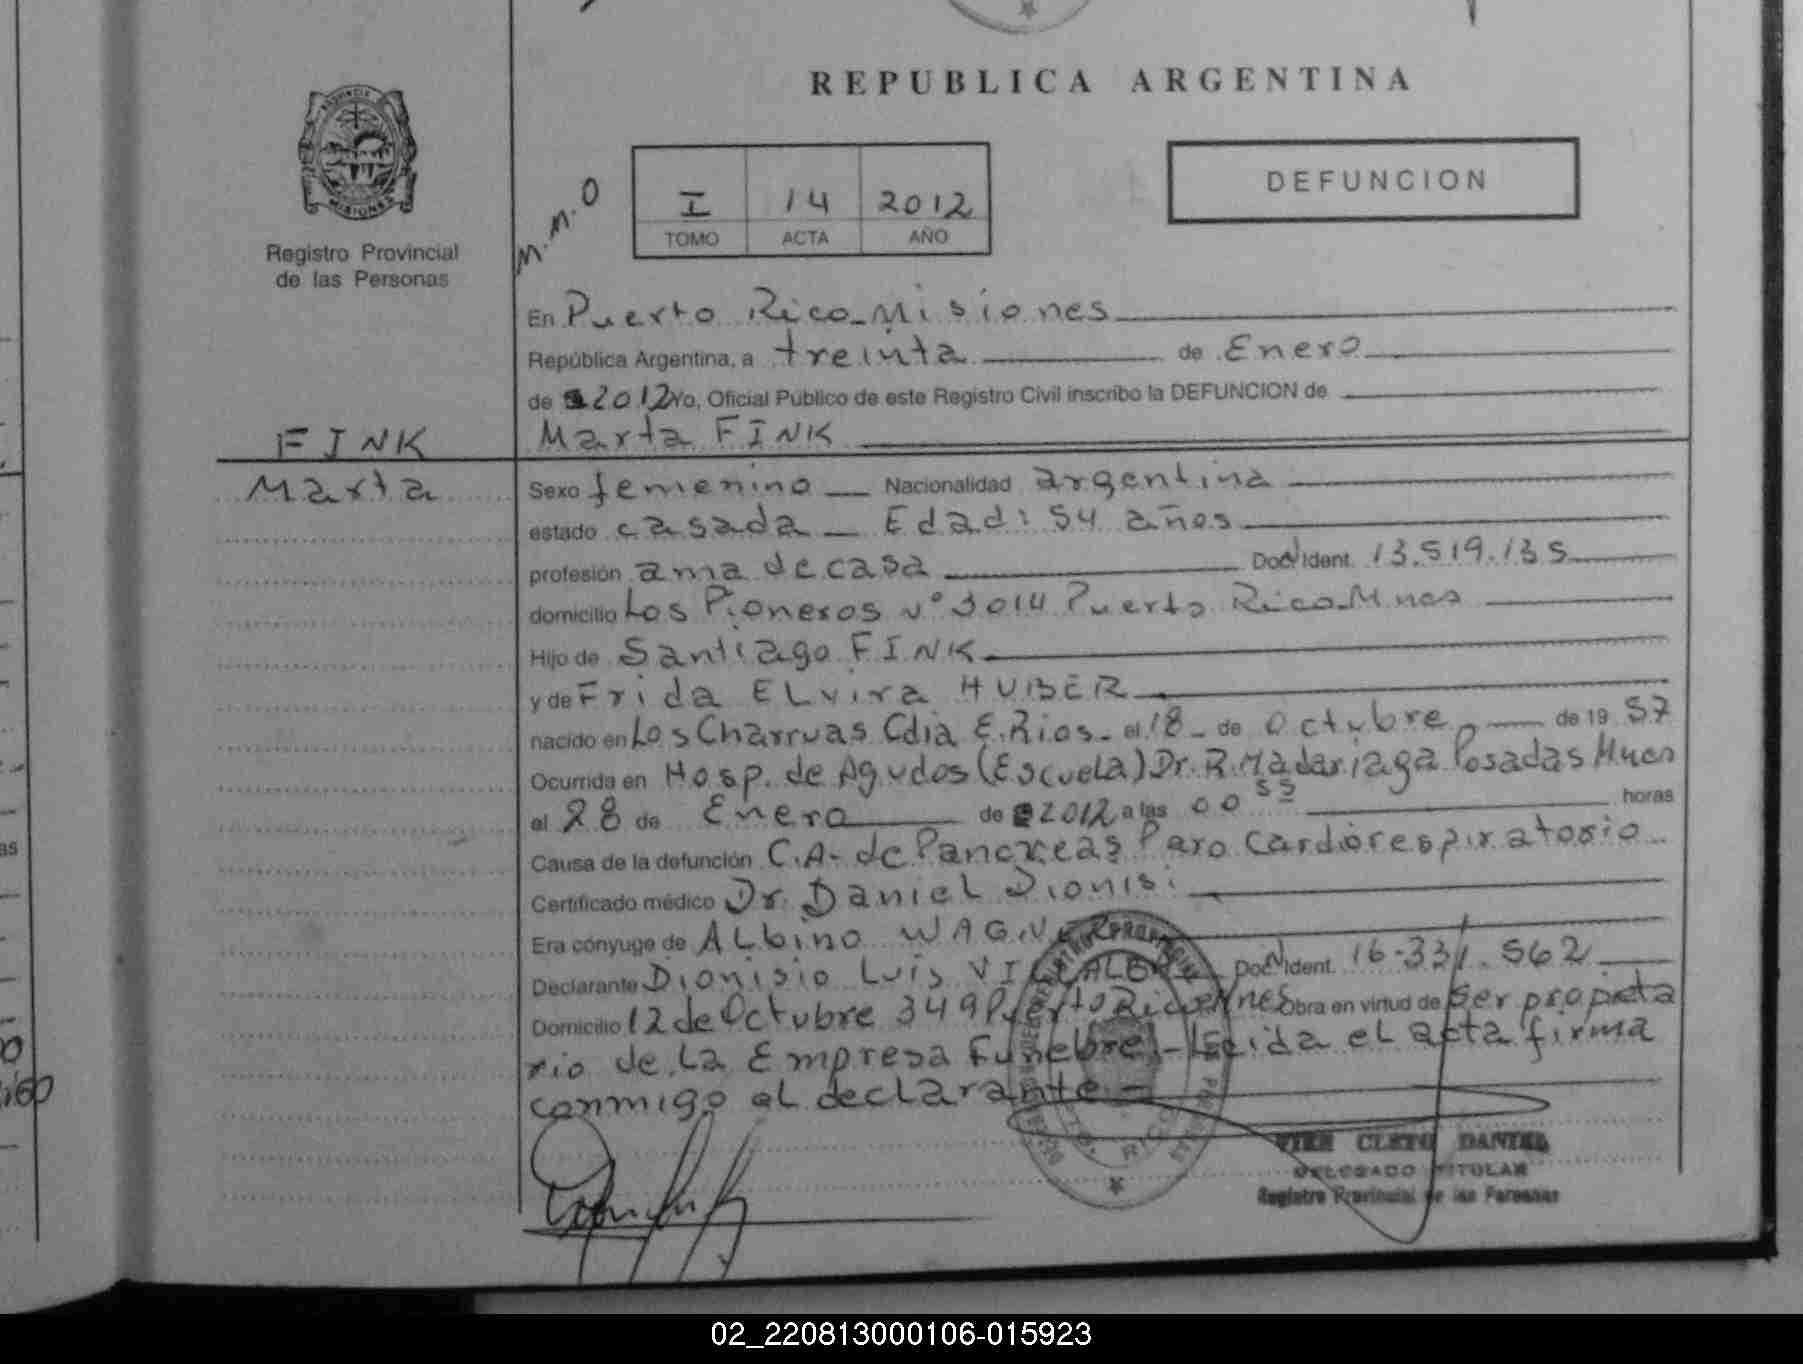 REPUBLICA ARGENTINA
PROVINCIA
MISIONES
Registro Provincial
de las Personas
M.M.O
I 14 2012
TOMO ACTA AÑO
DEFUNCION
En Puerto Rico-Misiones
República Argentina, a treinta de Enero
de 2012 Yo, Oficial Público de este Registro Civil inscribo la DEFUNCION de
FINK
Marta FINK
Marta
Sexo femenino Nacionalidad argentina
estado casada Edad: 54 años
profesión ama de casa Doc N Ident. 13.519.135
domicilio Los Pioneros N° 3014 Puerto Rico-Mnes
Hijo de Santiago FINK
y de Frida ELvira HUBER
nacido en Los Charruas Cdia E.Rios- el 18- de Octubre de 19 57
Ocurrida en Hosp. de Agudos (Escuela) Dr. R. Madariaga Posadas Mnes
el 28 de Enero de 2012 a las 00 55 horas
Causa de la defunción C.A- de Pancreas Paro Cardiorespiratorio
Certificado médico Dr. Daniel Dionisi
Era cónyuge de ALbino WAGNER
Declarante Dionisio Luis VILLALBA Doc N Ident. 16-331.562
Domicilio 12 de Octubre 349 Puerto Rico Mnes Obra en virtud de ser propieta
rio de La Empresa Funebre.- Leida el acta firma
conmigo el declarante-
CLETO DANIEL
DELEGADO TITULAR
Registro Provincial de las Personas
02_220813000106-015923